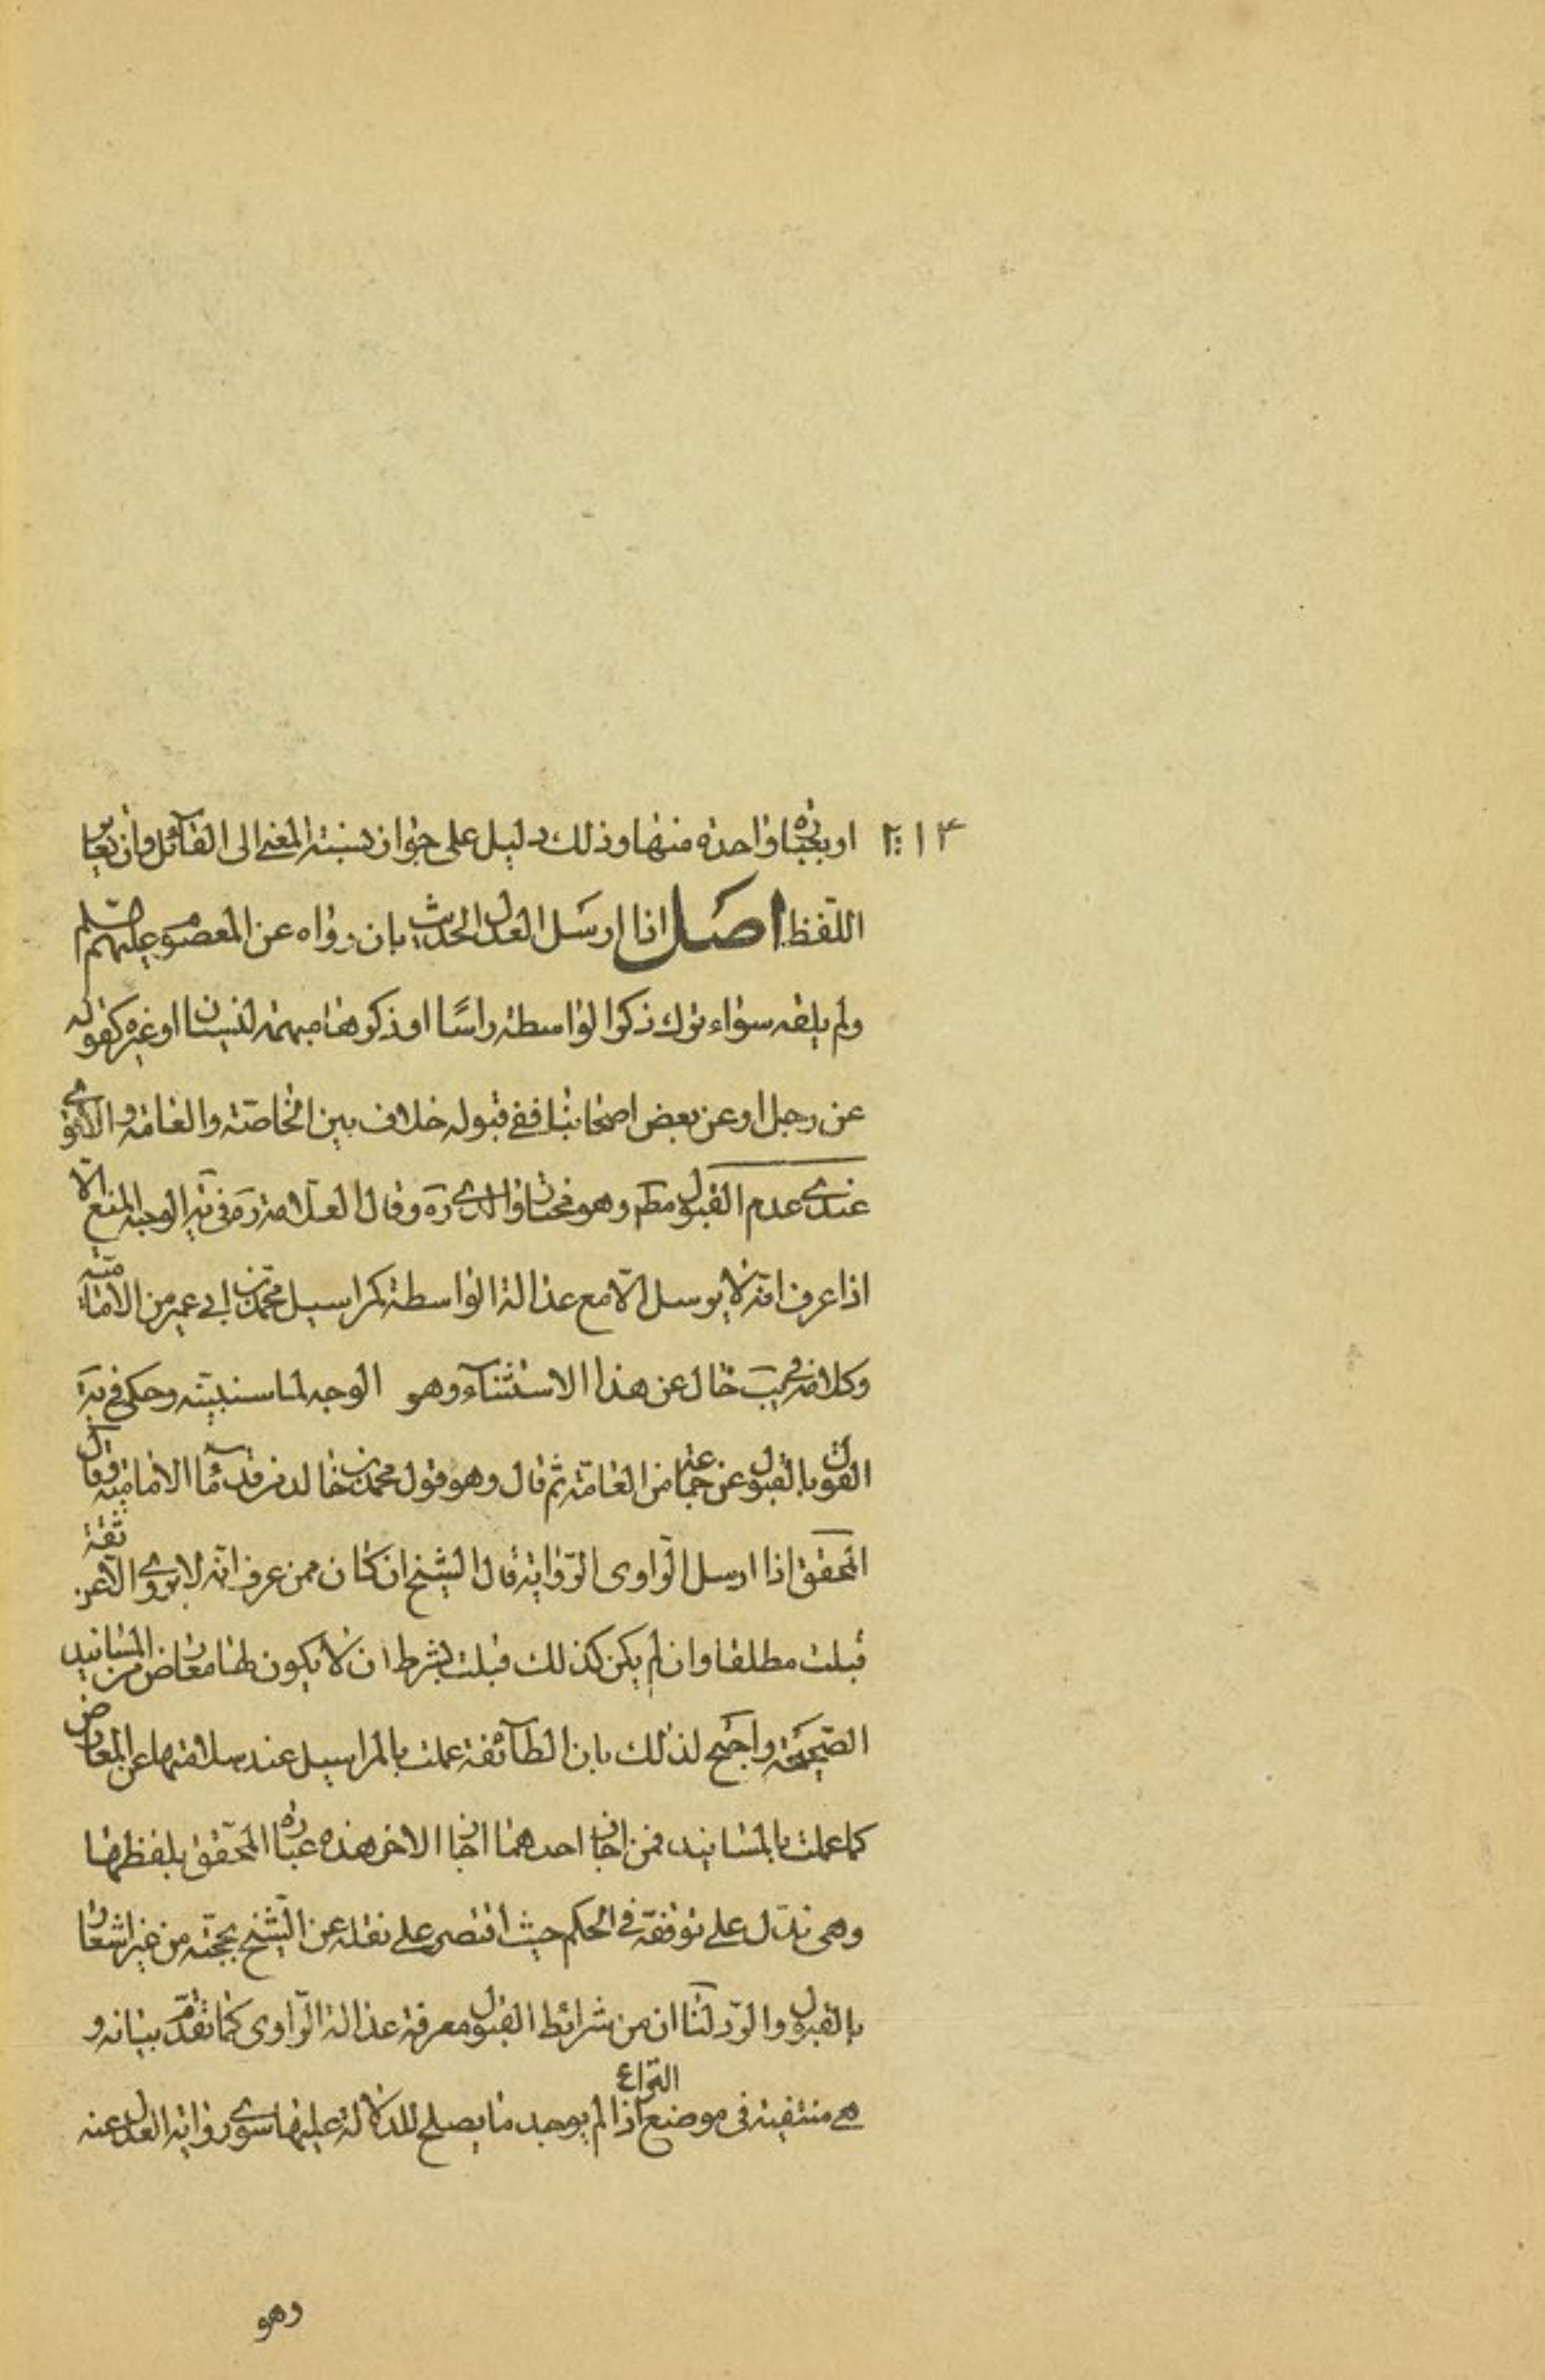 او بعبارة واحدة منها وذلك دليل على جواز نسبة المعنى الى القائل وان تغاير
اللفظ اصل اذا ارسل العدل الحديث بان رواه عن المعصوم عليهم
ولم يلقه سواء ترك ذكر الواسطة راسًا او ذكرها مبهمة لنسيان او غيره كقوله
عن رجل او عن بعض اصحابنا ففي قبوله خلاف بين الخاصة والعامة والاقوى
عندي عدم القبول مطم وهو مختار والدي ره وقال العلامة ره في يه الوجه المنع الّا
اذا عرف انه لا يرسل الّا مع عدالة الواسطة كمراسيل محمد بن ابي عمير من الامامية
وكلامه في يب خال عن هذا الاستثناء وهو الوجه لما سنبينه وحكى في يه
القول بالقبول عن جماعة من العامّة ثم قال وهو قول محمد بن خالد من قدماء الامامية وقال
المحقق اذا ارسل الراوى الرواية قال الشيخ ان كان ممن عرف انه لا يروي الّا عن ثقة
قبلت مطلقا وان لم يكن كذلك قبلت بشرط ان لا يكون لها معارض من المسانيد
الصحيحة واحتج لذلك بان الطائفة عملت بالمراسيل عند سلامتها عن المعارض
كما عملت بالمسانيد فمن اجاز احدهما اجاز الاخر هذه عبارة المحقق بلفظها
وهي تدل على توقفه في الحكم حيث اقتصر على نقله عن الشيخ بحجته من غير اشعار
بالقبول والرد لنا ان من شرائط القبول معرفة عدالة الراوى كما تقدّم بيانه و
هي منتفية في موضع النزاع اذا لم يوجد ما يصلح للدلالة عليها سوى رواية العدل عنه
وهو